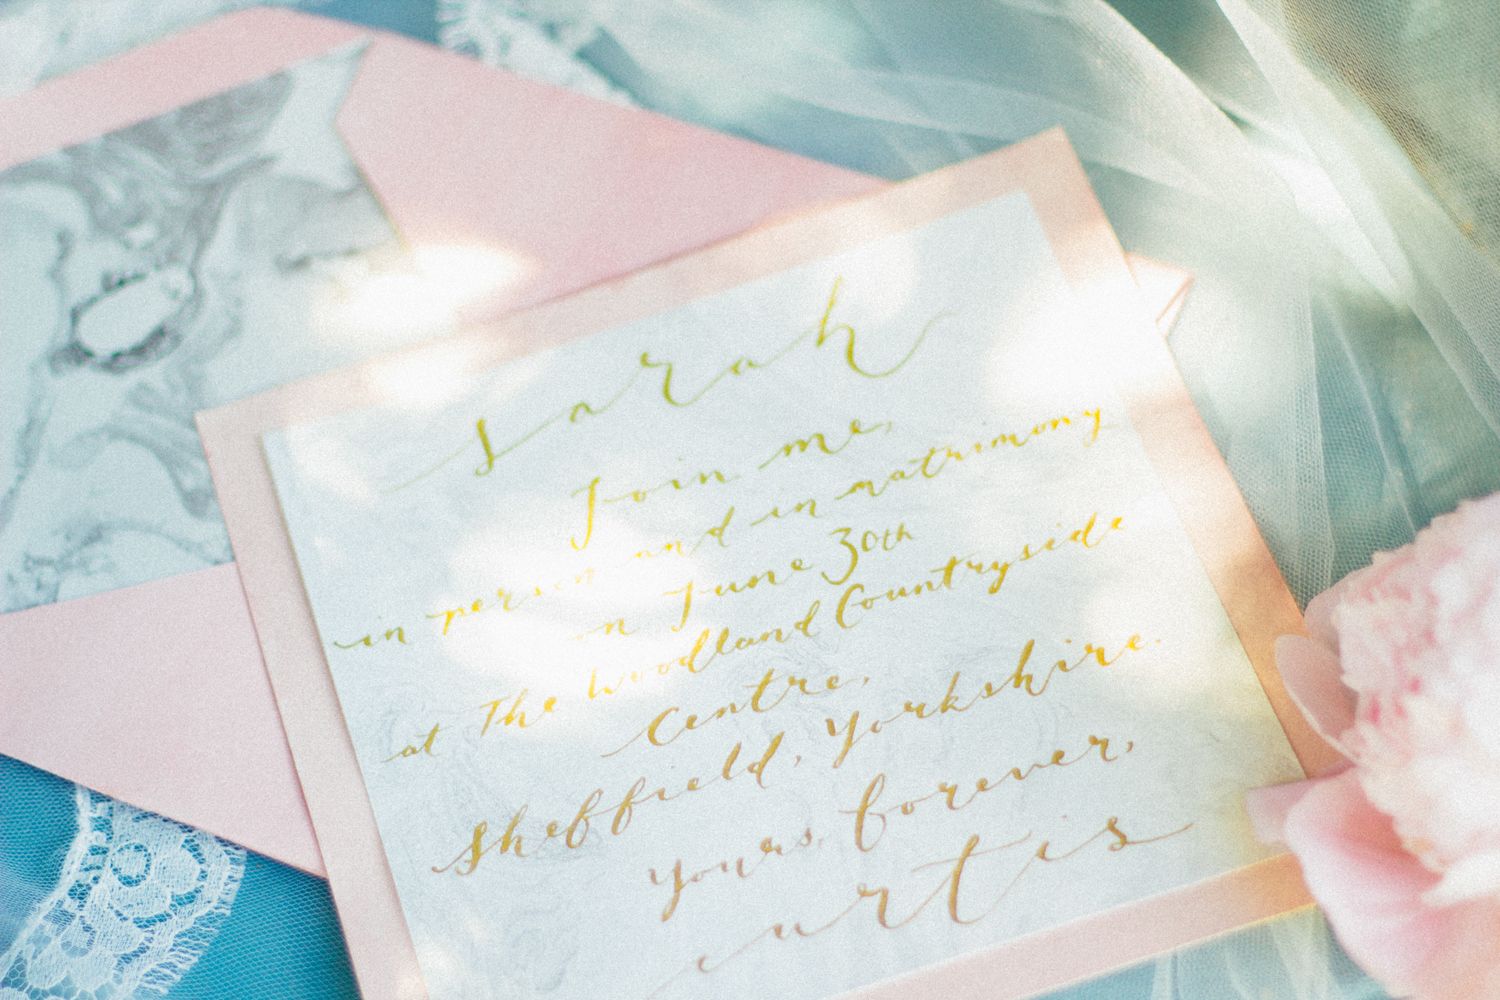 Sarah
Join me,
in person and in matrimony
on June 30th
at The Woodland Countryside
Centre,
Sheffield, Yorkshire.
Yours, forever,
Curtis